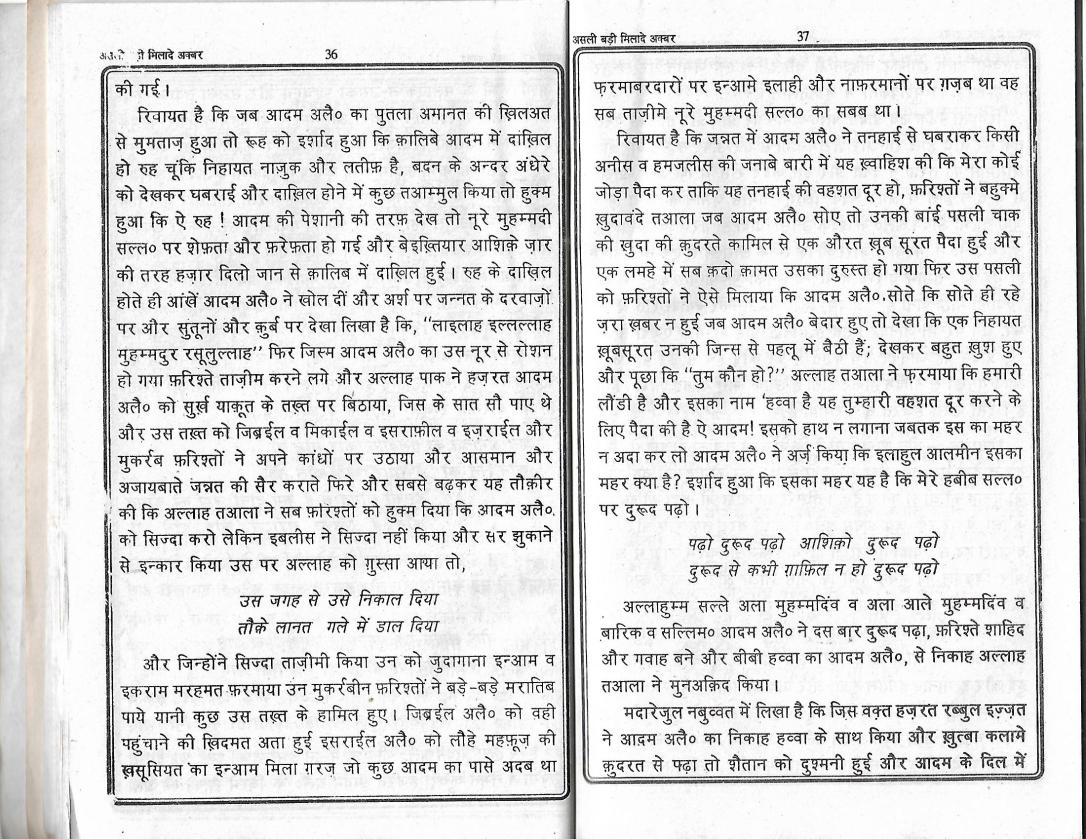 मिलादे अक्बर
36
की गई।
रिवायत है कि जब आदम अलै० का पुतला अमानत की ख़िलअत
से मुमताज़ हुआ तो रूह को इर्शाद हुआ कि क़ालिबे आदम में दांख़िल
हो रुह चूंकि निहायत नाज़ुक और लतीफ़ है, बदन के अन्दर अंधेरे
को देखकर घबराई और दाख़िल होने में कुछ तआम्मुल किया तो हुक्म
हुआ कि ऐ रुह ! आदम की पेशानी की तरफ़ देख तो नूरे मुहम्मदी
सल्ल० पर शेफ़ता और फ़रेफ़ता हो गई और बेइख़्तियार आशिक़े ज़ार
की तरह हज़ार दिलो जान से क़ालिब में दाख़िल हुई। रुह के दाख़िल
होते ही आंखें आदम अलै० ने खोल दीं और अर्श पर जन्नत के दरवाज़ों
पर और सुतूनों और क़ुर्ब पर देखा लिखा है कि, ‘‘लाइलाह इल्लल्लाह
मुहम्मदुर रसूलुल्लाह’’ फिर जिस्म आदम अलै० का उस नूर से रोशन
हो गया फ़रिश्ते ताज़ीम करने लगे और अल्लाह पाक ने हज़रत आदम
अलै० को सुर्ख़ याक़ूत के तख़्त पर बिठाया, जिस के सात सौ पाए थे
और उस तख़्त को जिब्रईल व मिकाईल व इसराफ़ील व इज़राईल और
मुकर्रब फ़रिश्तों ने अपने कांधों पर उठाया और आसमान और
अजायबाते जन्नत की सैर कराते फिरे और सबसे बढ़कर यह तौक़ीर
की कि अल्लाह तआला ने सब फ़रिश्तों को हुक्म दिया कि आदम अलै०.
को सिज्दा करो लेकिन इबलीस ने सिज्दा नहीं किया और सर झुकाने
से इन्कार किया उस पर अल्लाह को ग़ुस्सा आया तो,
उस जगह से उसे निकाल दिया
तौक़े लानत गले में डाल दिया
और जिन्होंने सिज्दा ताज़ीमी किया उन को जुदागाना इन्आम व
इकराम मरहमत फ़रमाया उन मुकर्रबीन फ़रिश्तों ने बड़े-बड़े मरातिब
पाये यानी कुछ उस तख़्त के हामिल हुए। जिब्रईल अलै० को वही
पहुंचाने की ख़िदमत अता हुई इसराईल अलै० को लौहे महफ़ूज़ की
ख़सूसियत का इन्आम मिला ग़रज़ जो कुछ आदम का पासे अदब था
असली बड़ी मिलादे अक्बर
37
फ़रमाबरदारों पर इन्आमे इलाही और नाफ़रमानों पर ग़ज़ब था वह
सब ताज़ीमे नूरे मुहम्मदी सल्ल० का सबब था।
रिवायत है कि जन्नत में आदम अलै० ने तनहाई से घबराकर किसी
अनीस व हमजलीस की जनाबे बारी में यह ख़्वाहिश की कि मेरा कोई
जोड़ा पैदा कर ताकि यह तनहाई की वहशत दूर हो, फ़रिश्तों ने बहुक्मे
ख़ुदावंदे तआला जब आदम अलै० सोए तो उनकी बांई पसली चाक
की खुदा की क़ुदरते कामिल से एक औरत ख़ूब सूरत पैदा हुई और
एक लमहे में सब क़दो क़ामत उसका दुरुस्त हो गया फिर उस पसली
को फ़रिश्तों ने ऐसे मिलाया कि आदम अलै०.सोते कि सोते ही रहे
ज़रा ख़बर न हुई जब आदम अलै० बेदार हुए तो देखा कि एक निहायत
ख़ूबसूरत उनकी जिन्स से पहलू में बैठी हैं; देखकर बहुत ख़ुश हुए
और पूछा कि ‘‘तुम कौन हो?’’ अल्लाह तआला ने फ़रमाया कि हमारी
लौंडी है और इसका नाम ‘हव्वा है यह तुम्हारी वहशत दूर करने के
लिए पैदा की है ऐ आदम! इसको हाथ न लगाना जबतक इस का महर
न अदा कर लो आदम अलै० ने अर्ज़ किया कि इलाहुल आलमीन इसका
महर क्या है? इर्शाद हुआ कि इसका महर यह है कि मेरे हबीब सल्ल०
पर दुरूद पढ़ो।
पढ़ो दुरूद पढ़ो आशिक़ो दुरूद पढ़ो
दुरूद से कभी ग़ाफ़िल न हो दुरूद पढ़ो
अल्लाहुम्म सल्ले अला मुहम्मदिंव व अला आले मुहम्मदिंव व
बारिक व सल्लिम० आदम अलै० ने दस बार दुरूद पढ़ा, फ़रिश्ते शाहिद
और गवाह बने और बीबी हव्वा का आदम अलै०, से निकाह अल्लाह
तआला ने मुनअक़िद किया।
मदारेजुल नबुव्वत में लिखा है कि जिस वक़्त हज़रत रब्बुल इज़्ज़त
ने आदम अलै० का निकाह हव्वा के साथ किया और ख़ुत्बा कलामे
क़ुदरत से पढ़ा तो शैतान को दुश्मनी हुई और आदम के दिल में